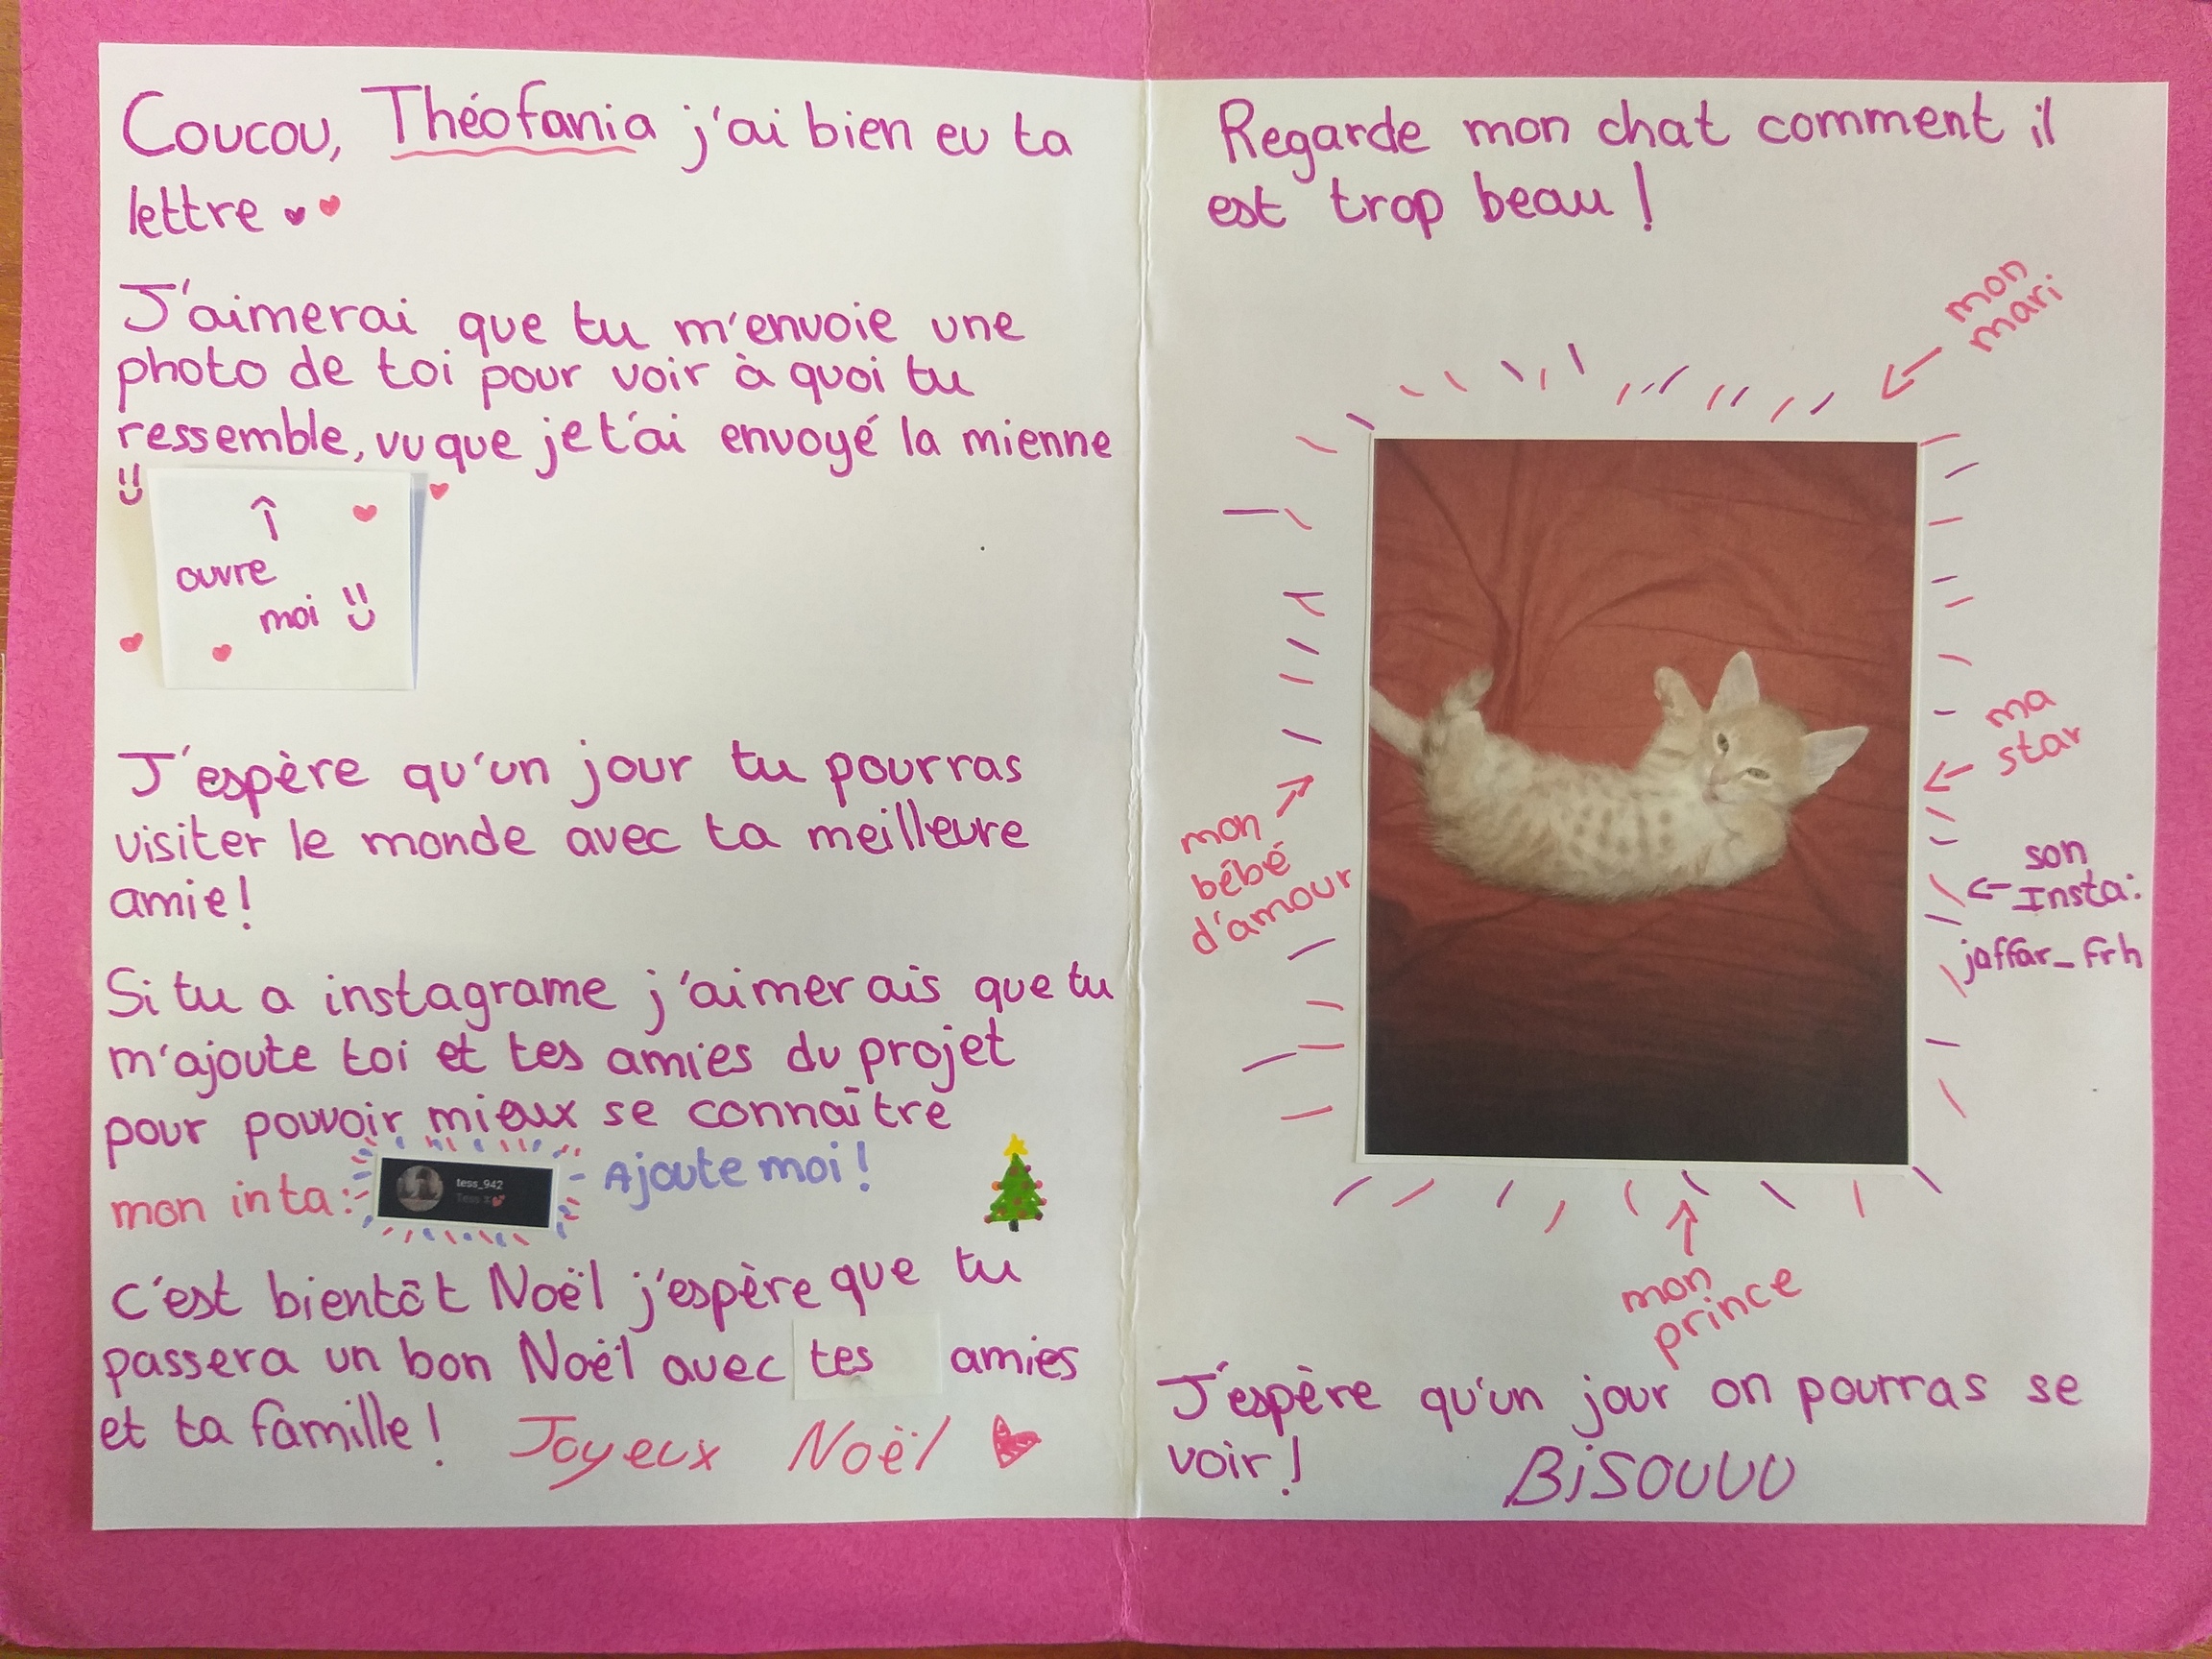 Coucou, Théofania j'ai bien eu ta
lettre
J'aimerai que tu m'envoie une
photo de toi pour voir à quoi tu
ressemble, vu que je t'ai envoyé la mienne
ouvre
moi
J'espère qu'un jour tu pourras
visiter le monde avec ta meilleure
amie!
Si tu a instagrame j'aimerais que tu
m'ajoute toi et tes amies du projet
pour pouvoir mieux se connaître
mon inta:
tess_942
Ajoute moi!
c'est bientôt Noël j'espère que tu
passera un bon Noël avec tes amies
et ta famille!
Joyeux Noël
Regarde mon chat comment il
est trop beau!
mon
mari
ma
star
mon
bébé
d'amour
son
Insta:
jaffar_frh
mon
prince
J'espère qu'un jour on pourras se
voir!
BiSOUUU